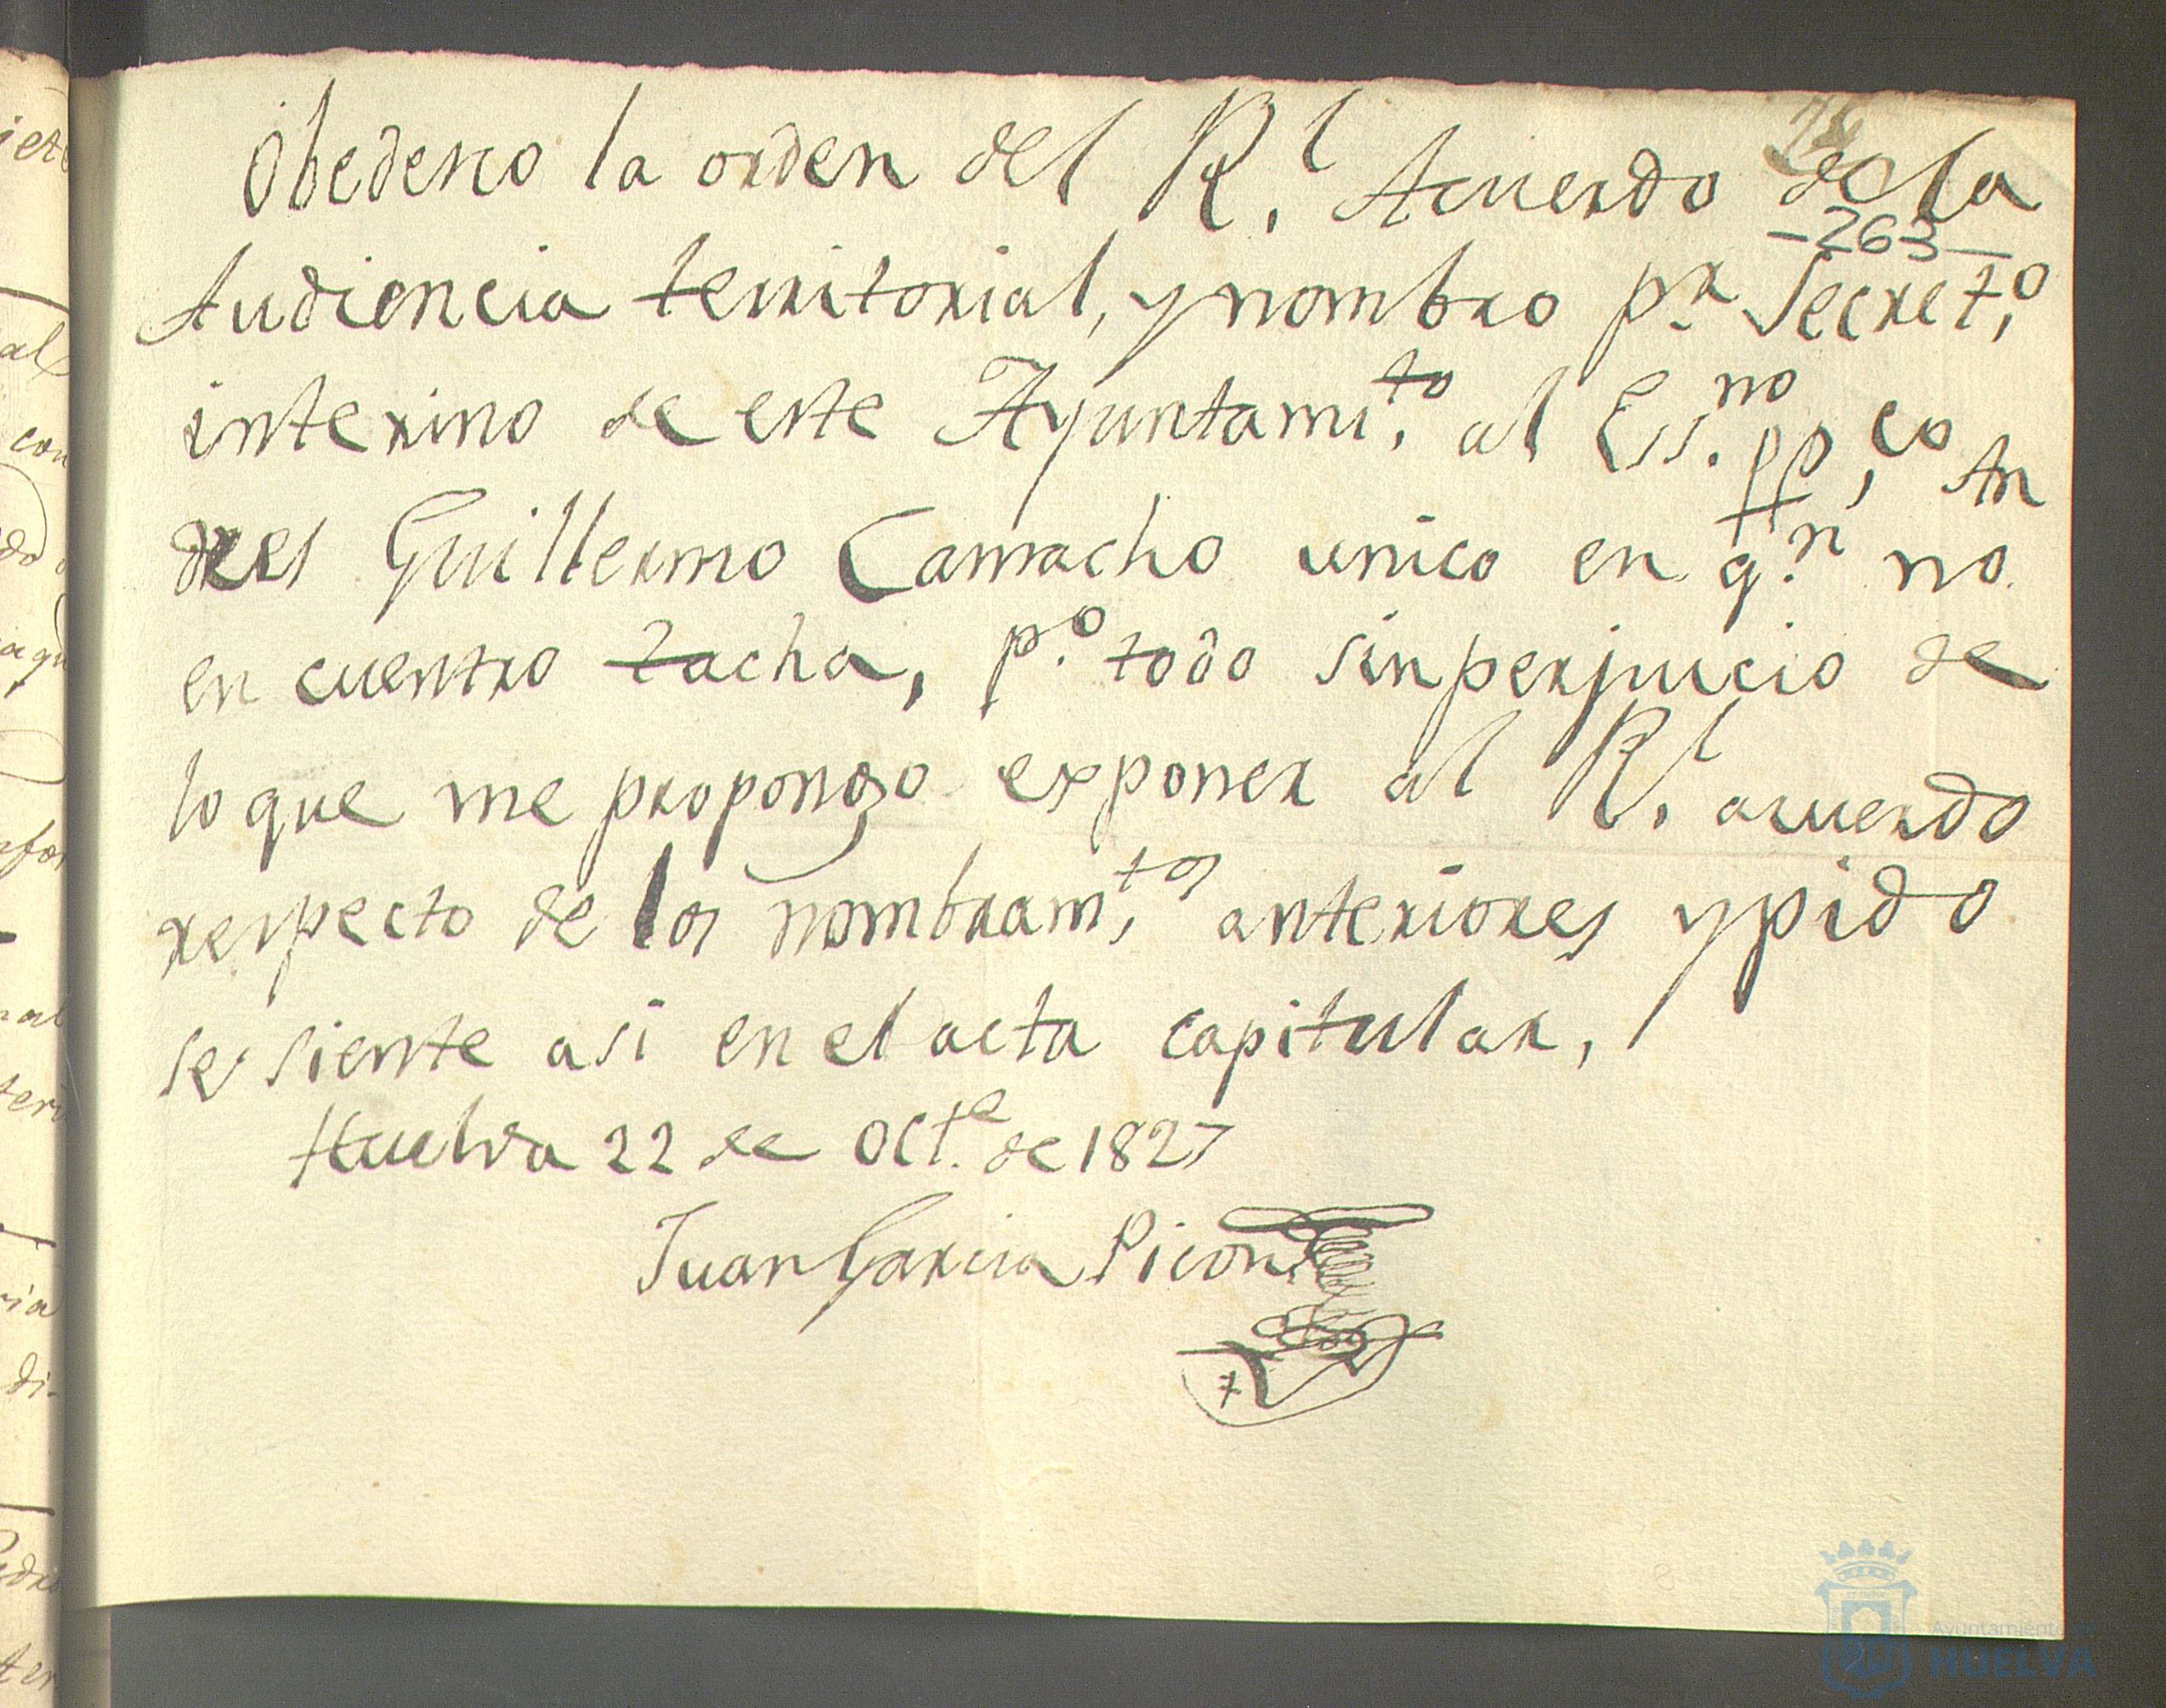 Obedesco la orden del R.l Acuerdo de la
-263-
Audiencia territorial, y nombro p.r Secret.o
interino de este Ayuntami.to al Ess.no pp.co An
dres Guillermo Camacho unico en q.n no
en cuentro tacha, p.o todo sin perjuicio de
lo que me propongo exponer al R.l acuerdo
respecto de los nombram.tos anteriores y pido
se siente asi en el acta capitular,
Huelva 22 de Oct.e de 1827
Juan Garcia Picon
Ayuntamiento de
HUELVA